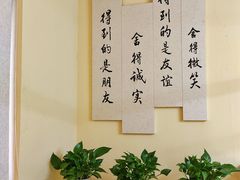 舍得微笑
得到的是友谊
舍得诚实
得到的是朋友